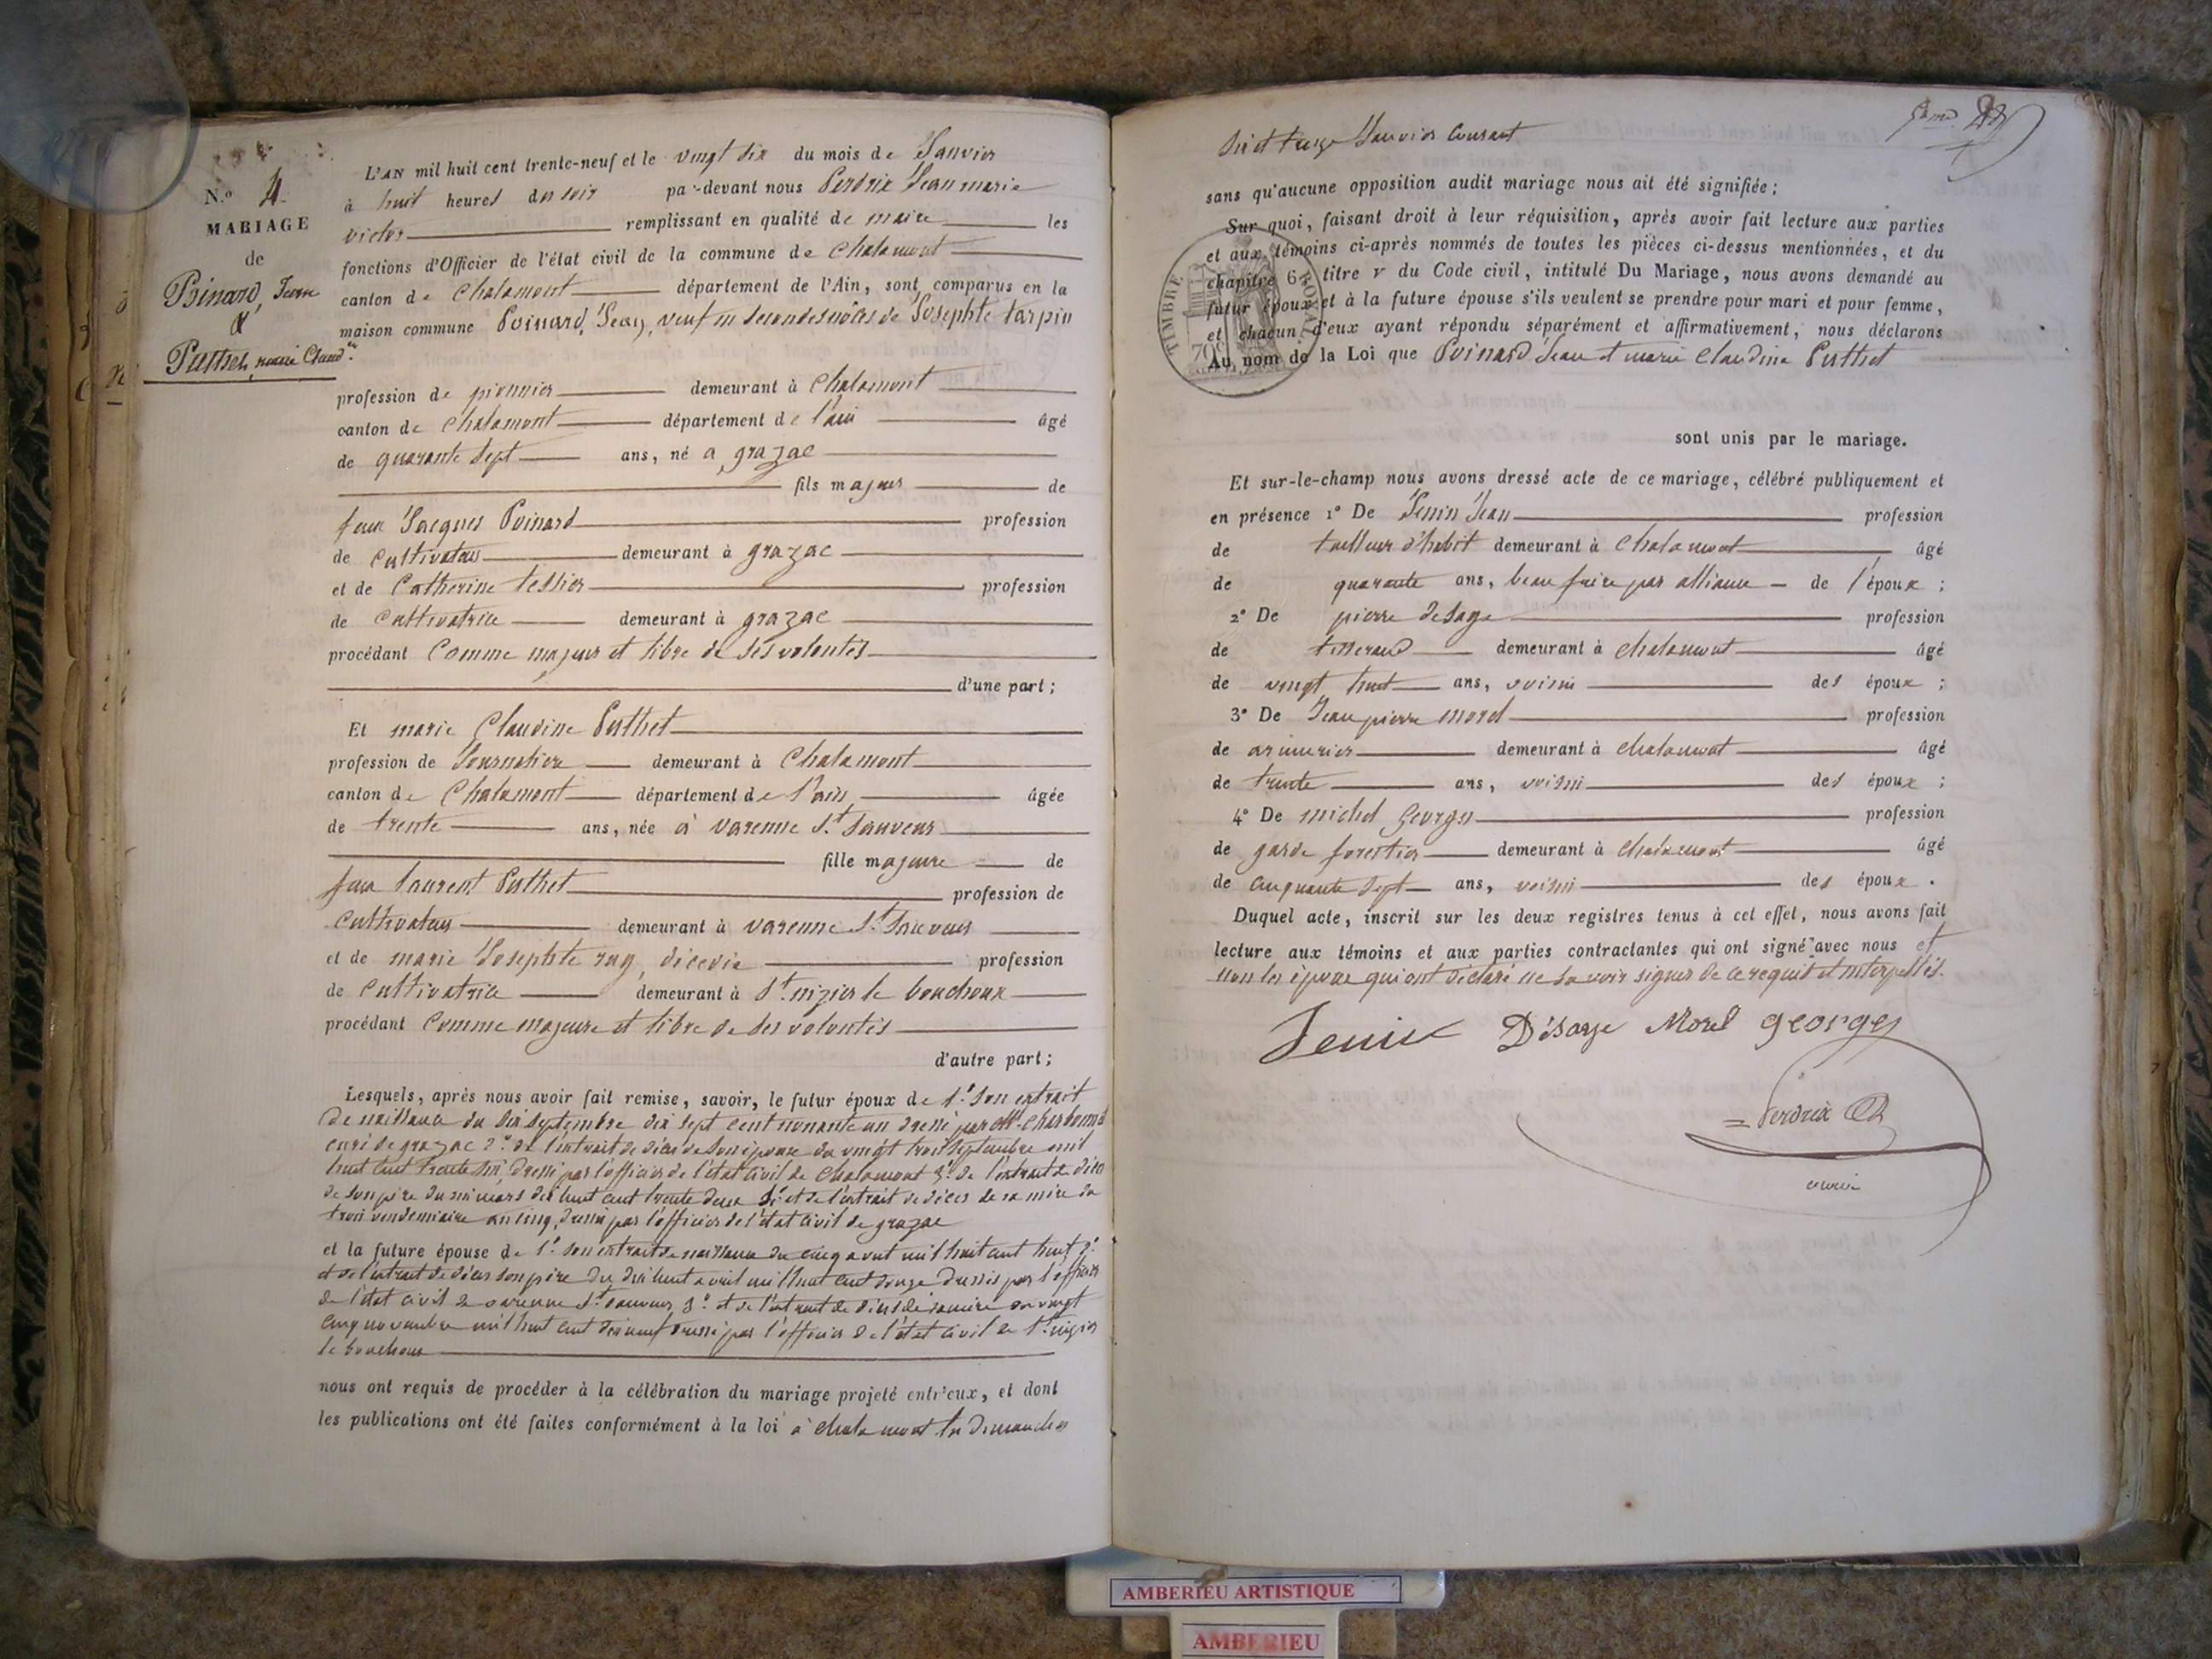 N.° 4.
MARIAGE
de
Poinard, Jean
&
Puthet, marie Claud.ne
L'AN mil huit cent trente-neuf et le vingt six du mois de Janvier
à huit heures du soir par-devant nous Perdrix Jean marie
victor remplissant en qualité de maire les
fonctions d'Officier de l'état civil de la commune de Chalamont
canton de Chalamont département de l'Ain, sont comparus en la
maison commune Poinard, Jean, veuf en secondes nôces de Josephte tarpin
profession de pionnier demeurant à Chalamont
canton de Chalamont département de l'ain âgé
de quarante sept ans, né a grazac
fils majeur de
feux Jacques Poinard profession
de cultivateur demeurant à grazac
et de Catherine tessier profession
de cultivatrice demeurant à grazac
procédant Comme majeur et libre de ses volontés
d'une part;
Et marie Claudine Puthet
profession de Journalière demeurant à Chalamont
canton de Chalamont département de l'ain âgée
de trente ans, née à varenne St. Sauveur
fille majeure de
feux Laurent Puthet profession de
cultivateur demeurant à varenne St. Sauveur
et de marie Josephte ray, décédée profession
de cultivatrice demeurant à St. nizier le bouchoux
procédant Comme majeure et libre de ses volontés
d'autre part;
Lesquels, après nous avoir fait remise, savoir, le futur époux de 1.° son extrait
de naissance du dix septembre dix sept cent nonante un dressé par Mr. Charbonnel
curé de grazac 2.° de l'extrait de décès de son épouse du vingt trois septembre mil
huit cent trente six, dressé par l'officier de l'état civil de Chalamont 3.° de l'extrait de décès
de son père du mars dix huit cent trente deux 4.° et de l'extrait de décès de sa mère du
trois vendemiaire an cinq, dressé par l'officier de l'état civil de grazac
et la future épouse de 1.° son extrait de naissance du cinq aout mil huit cent huit 2.°
et de l'extrait de décès son père du dix huit avril mil huit cent douze dressés par l'officier
de l'état civil de varenne St. sauveur, 3.° et de l'extrait de décès de sa mère du vingt
cinq novembre mil huit cent dix neuf dressé par l'officier de l'état civil de St. nizier
le bouchoux
nous ont requis de procéder à la célébration du mariage projeté entr'eux, et dont
les publications ont été faites conformément à la loi à chalamont les dimanches
six et treize Janvier courant
sans qu'aucune opposition audit mariage nous ait été signifiée;
Sur quoi, faisant droit à leur réquisition, après avoir fait lecture aux parties
et aux témoins ci-après nommés de toutes les pièces ci-dessus mentionnées, et du
chapitre 6, titre v du Code civil, intitulé Du Mariage, nous avons demandé au
futur époux et à la future épouse s'ils veulent se prendre pour mari et pour femme,
et chacun d'eux ayant répondu séparément et affirmativement, nous déclarons
Au nom de la Loi que Poinard Jean et marie Claudine Puthet
TIMBRE ROYAL
70c
sont unis par le mariage.
Et sur-le-champ nous avons dressé acte de ce mariage, célébré publiquement et
en présence 1° De Jenin Jean profession
de tailleur d'habit demeurant à Chalamont âgé
de quarante ans, beau frère par alliance de l'époux;
2° De pierre desage profession
de tisserand demeurant à chalamont âgé
de vingt huit ans, voisin des époux;
3° De Jean pierre morel profession
de armurier demeurant à chalamont âgé
de trente ans, voisin des époux;
4° De michel Georges profession
de garde forestier demeurant à chalamont âgé
de cinquante sept ans, voisin des époux.
Duquel acte, inscrit sur les deux registres tenus à cet effet, nous avons fait
lecture aux témoins et aux parties contractantes qui ont signé avec nous et
non les époux qui ont déclaré ne savoir signer de ce requis et interpellés.
Jenin Désage Morel georges
Perdrix
maire
AMBERIEU ARTISTIQUE
AMBERIEU